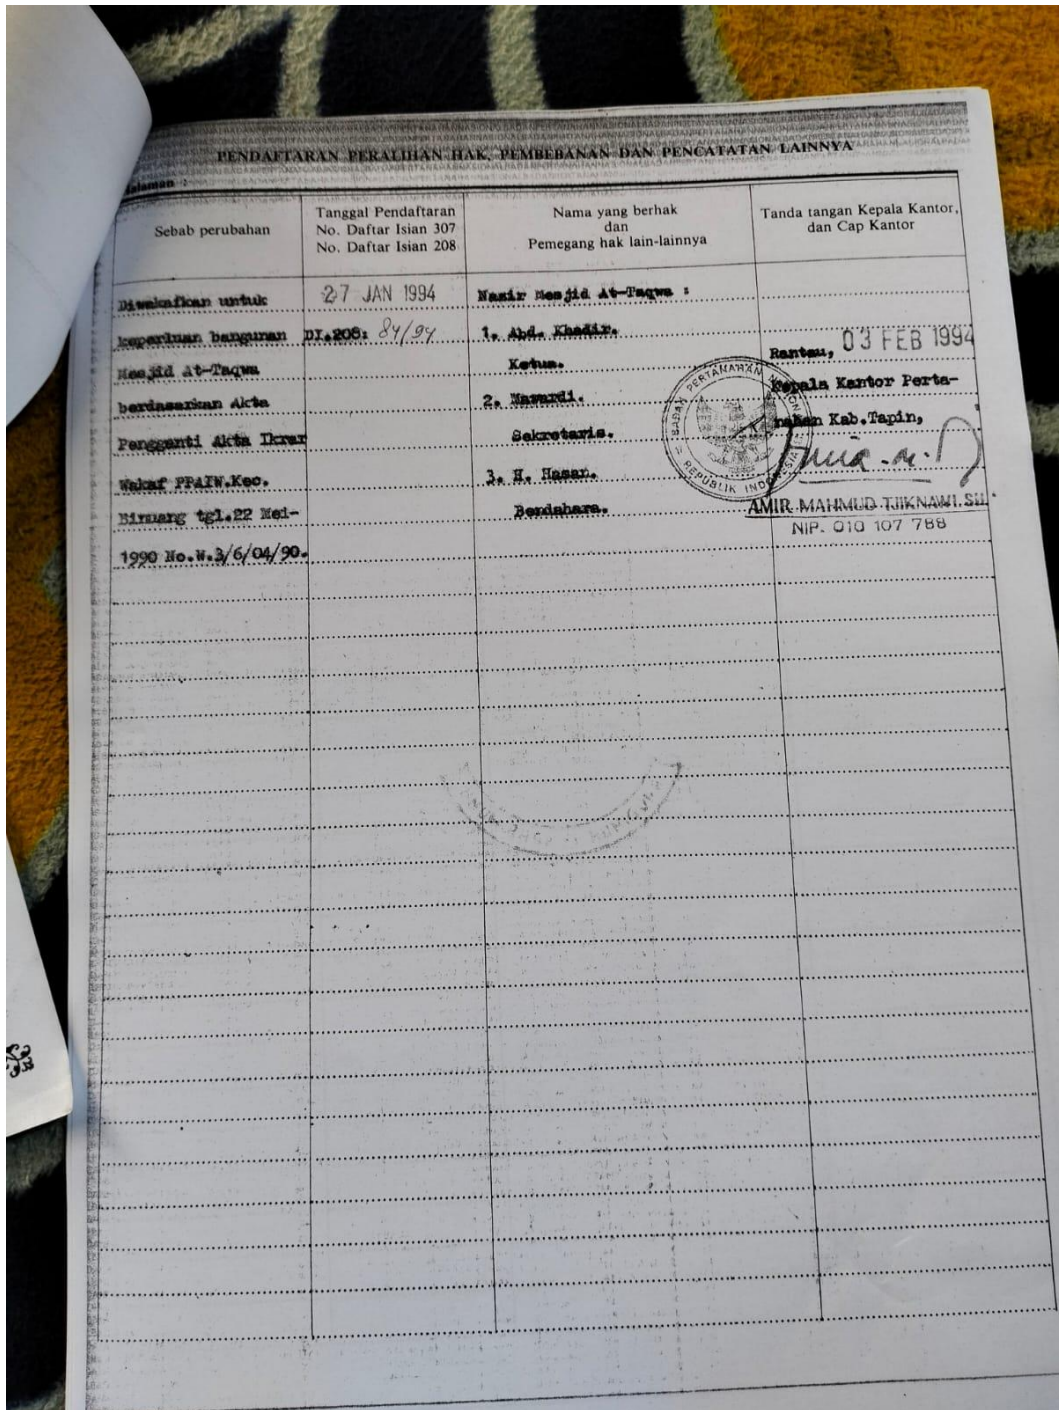 PENDAFTARAN PERALIHAN HAK, PEMBEBANAN DAN PENCATATAN LAINNYA
Halaman :
Sebab perubahan
Tanggal Pendaftaran
No. Daftar Isian 307
No. Daftar Isian 208
Nama yang berhak
dan
Pemegang hak lain-lainnya
Tanda tangan Kepala Kantor,
dan Cap Kantor
Diwakafkan untuk
keperluan bangunan
Mesjid At-Taqwa
berdasarkan Akta
Pengganti Akta Ikrar
Wakaf PPAIW.Kec.
Binuang tgl.22 Mei-
1990 No.W.3/6/04/90.
27 JAN 1994
DI.208: 84/94
Nazir Mesjid At-Taqwa :
1. Abd. Khadir.
Ketua.
2. Mawardi.
Sekretaris.
3. H. Hasan.
Bendahara.
Rantau, 03 FEB 1994
Kepala Kantor Perta-
nahan Kab.Tapin,
BADAN PERTANAHAN NASIONAL
REPUBLIK INDONESIA
AMIR MAHMUD TJIKNAWI.SH.
NIP. 010 107 788